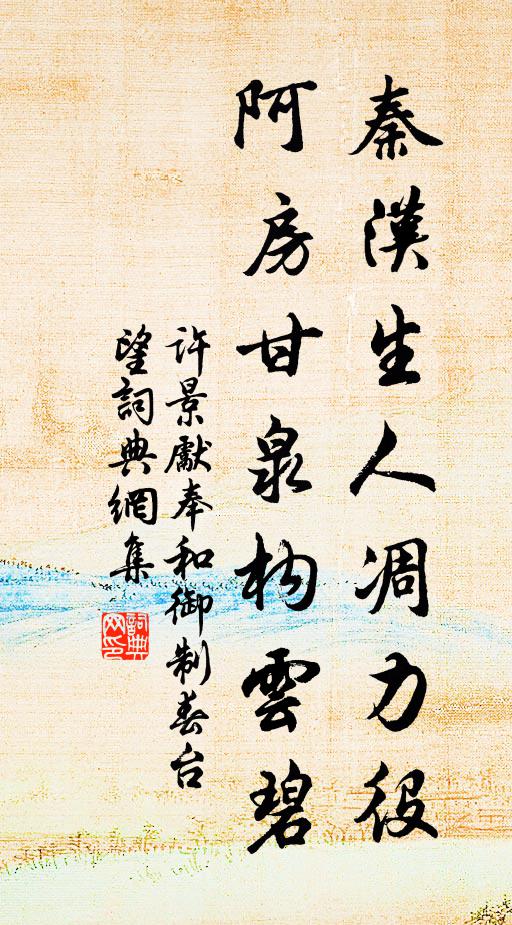 秦漢生人凋力役
阿房甘泉构雲碧
许景獻奉和御制春台
望詞典網集
詞典
网印